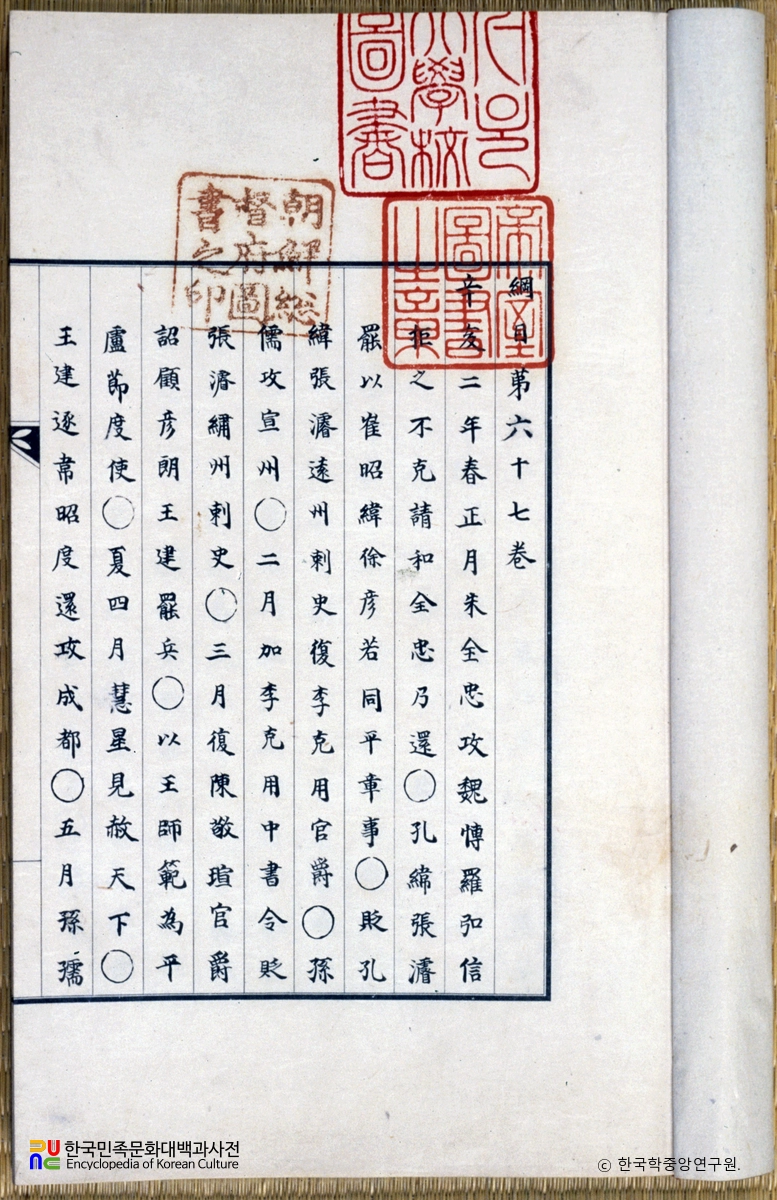 綱目第六十七卷
辛亥二年春正月朱全忠攻魏博羅弘信
拒之不克請和全忠乃還〇孔緯張濬
罷以崔昭緯徐彥若同平章事〇貶孔
緯張濬遠州刺史復李克用官爵〇孫
儒攻宣州〇二月加李克用中書令貶
張濬繡州刺史〇三月復陳敬瑄官爵
詔顧彥朗王建罷兵〇以王師範為平
盧節度使〇夏四月慧星見赦天下〇
王建逐韋昭度還攻成都〇五月孫儒
帝室圖書之章
朝鮮總督府圖書之印
大學校圖書
한국민족문화대백과사전
Encyclopedia of Korean Culture
ⓒ 한국학중앙연구원.